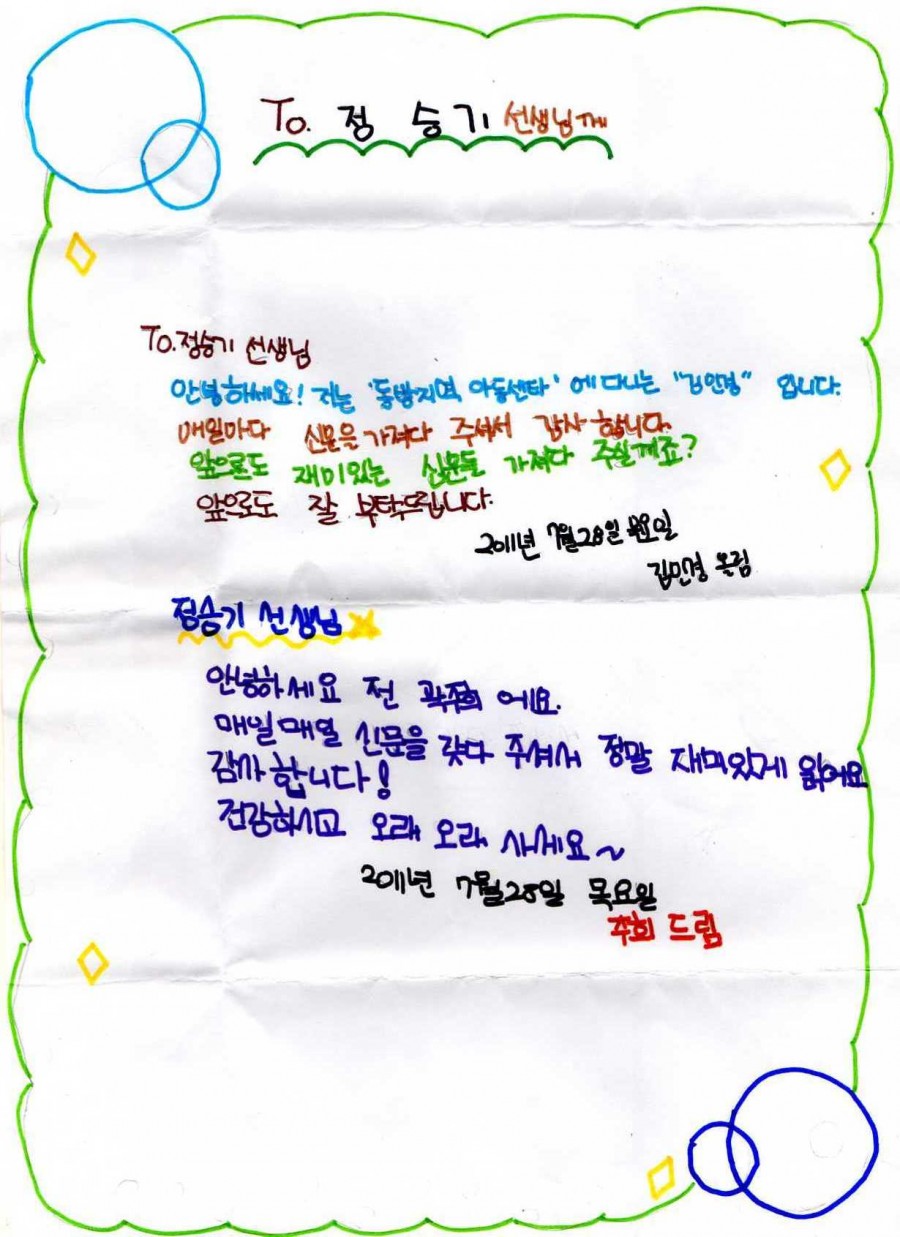 To. 정 승기 선생님께
To. 정승기 선생님
안녕하세요! 저는 '동방지역 아동센타' 에 다니는 "김민경" 입니다.
매일마다 신문을 가져다 주셔서 감사 합니다.
앞으로도 재미있는 신문들 가져다 주실꺼죠?
앞으로도 잘 부탁드립니다.
2011년 7월28일 목요일
김민경 올림
정승기 선생님
안녕하세요 전 곽주희 에요.
매일매일 신문을 갖다 주셔서 정말 재미있게 읽어요
감사합니다!
건강하시고 오래 오래 사세요~
2011년 7월28일 목요일
주희 드림